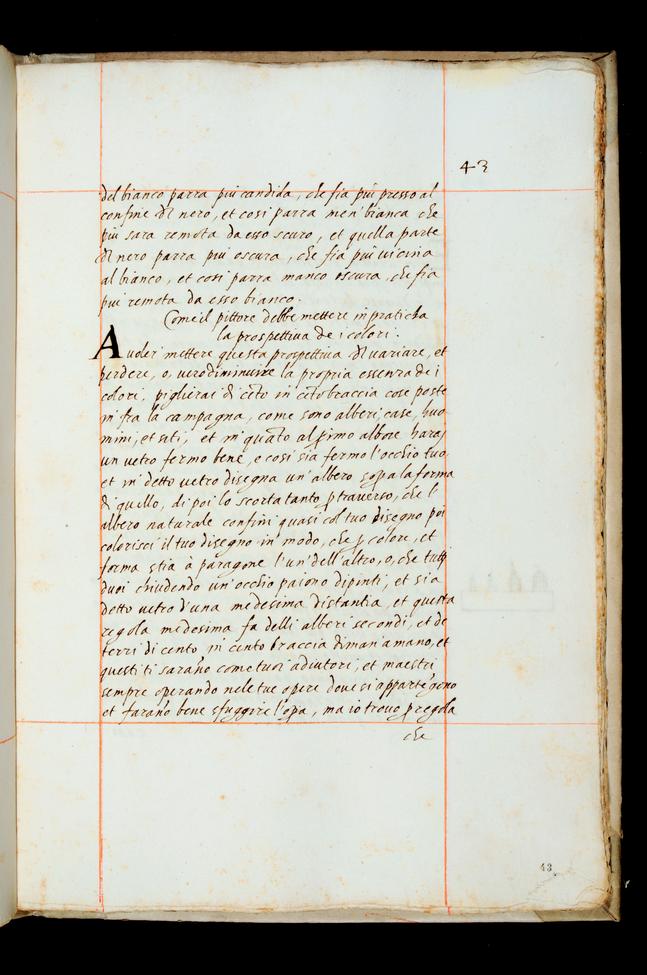 43
del bianco parra piu candida, che fia piu presso al
confine del nero, et cosi parra men' bianca che
piu sara remota da esso scuro, et quella parte
del nero parra piu oscura, che fia piu vicina
al bianco, et cosi parra manco oscura, che fia
piu remota da esso bianco.
Come il pittore debbe mettere in praticha
la prospettiva de i colori.
A voler mettere questa prospettiva del variare, et
perdere, o, vero diminuire la propria essenza de i
colori, piglierai di cēto in cēto braccia cose poste
in fra la campagna, come sono alberi, case, huo-
mini, et siti, et in quāto al p̄imo albore harai
un vetro fermo bene, e cosi sia fermo l'occhio tuo
et in detto vetro disegna un' albero sop̄a la forma
di quello, di poi lo scorta tanto p̄ traverso, che l'
albero naturale confini quasi col tuo disegno poi
colorisci il tuo disegno in modo, che p̄ colore, et
forma stia à paragone l'un' dell'altro, o, che tutti
duoi chiudendo un'occhio paiono dipinti, et sia
detto vetro d'una medesima distantia, et questa
regola medesima fa delli alberi secondi, et de
terzi di cento in cento braccia di man' a mano, et
questi ti sarāno come tuoi adiutori, et maestri
sempre operando nele tue opere dove si appartēgono
et farāno bene sfuggire l'op̄a, ma io trovo p̄ regola
che
43